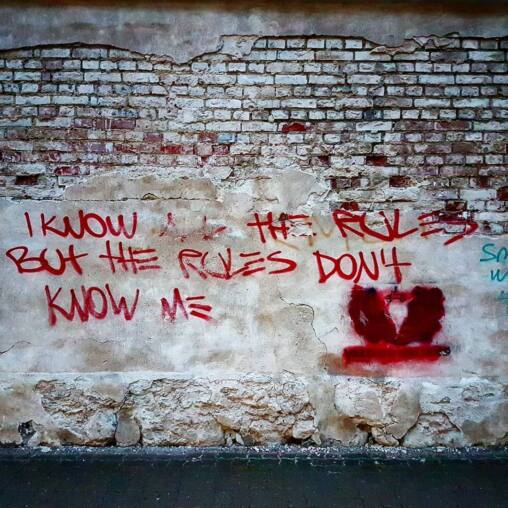 I KNOW ALL THE RULES
BUT THE RULES DON'T
KNOW ME